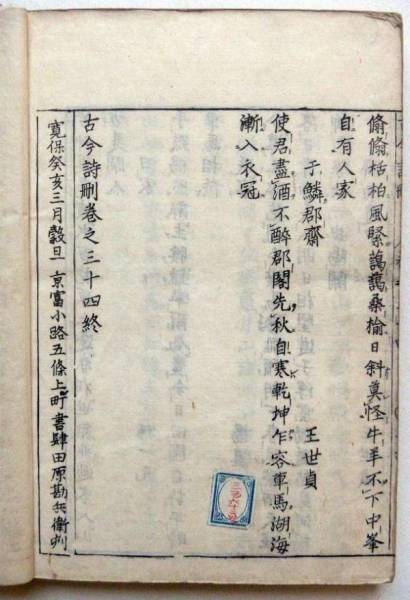 脩脩栝柏風緊藹藹桑榆日斜莫怪牛羊不下中峯
自有人家
于鱗郡齋
王世貞
使君盡酒不醉郡閣先秋自寒乾坤乍容車馬湖海
漸入衣冠
古今詩刪卷之三十四終
寛保癸亥三月穀旦 京富小路五條上町書肆田原勘兵衞刋